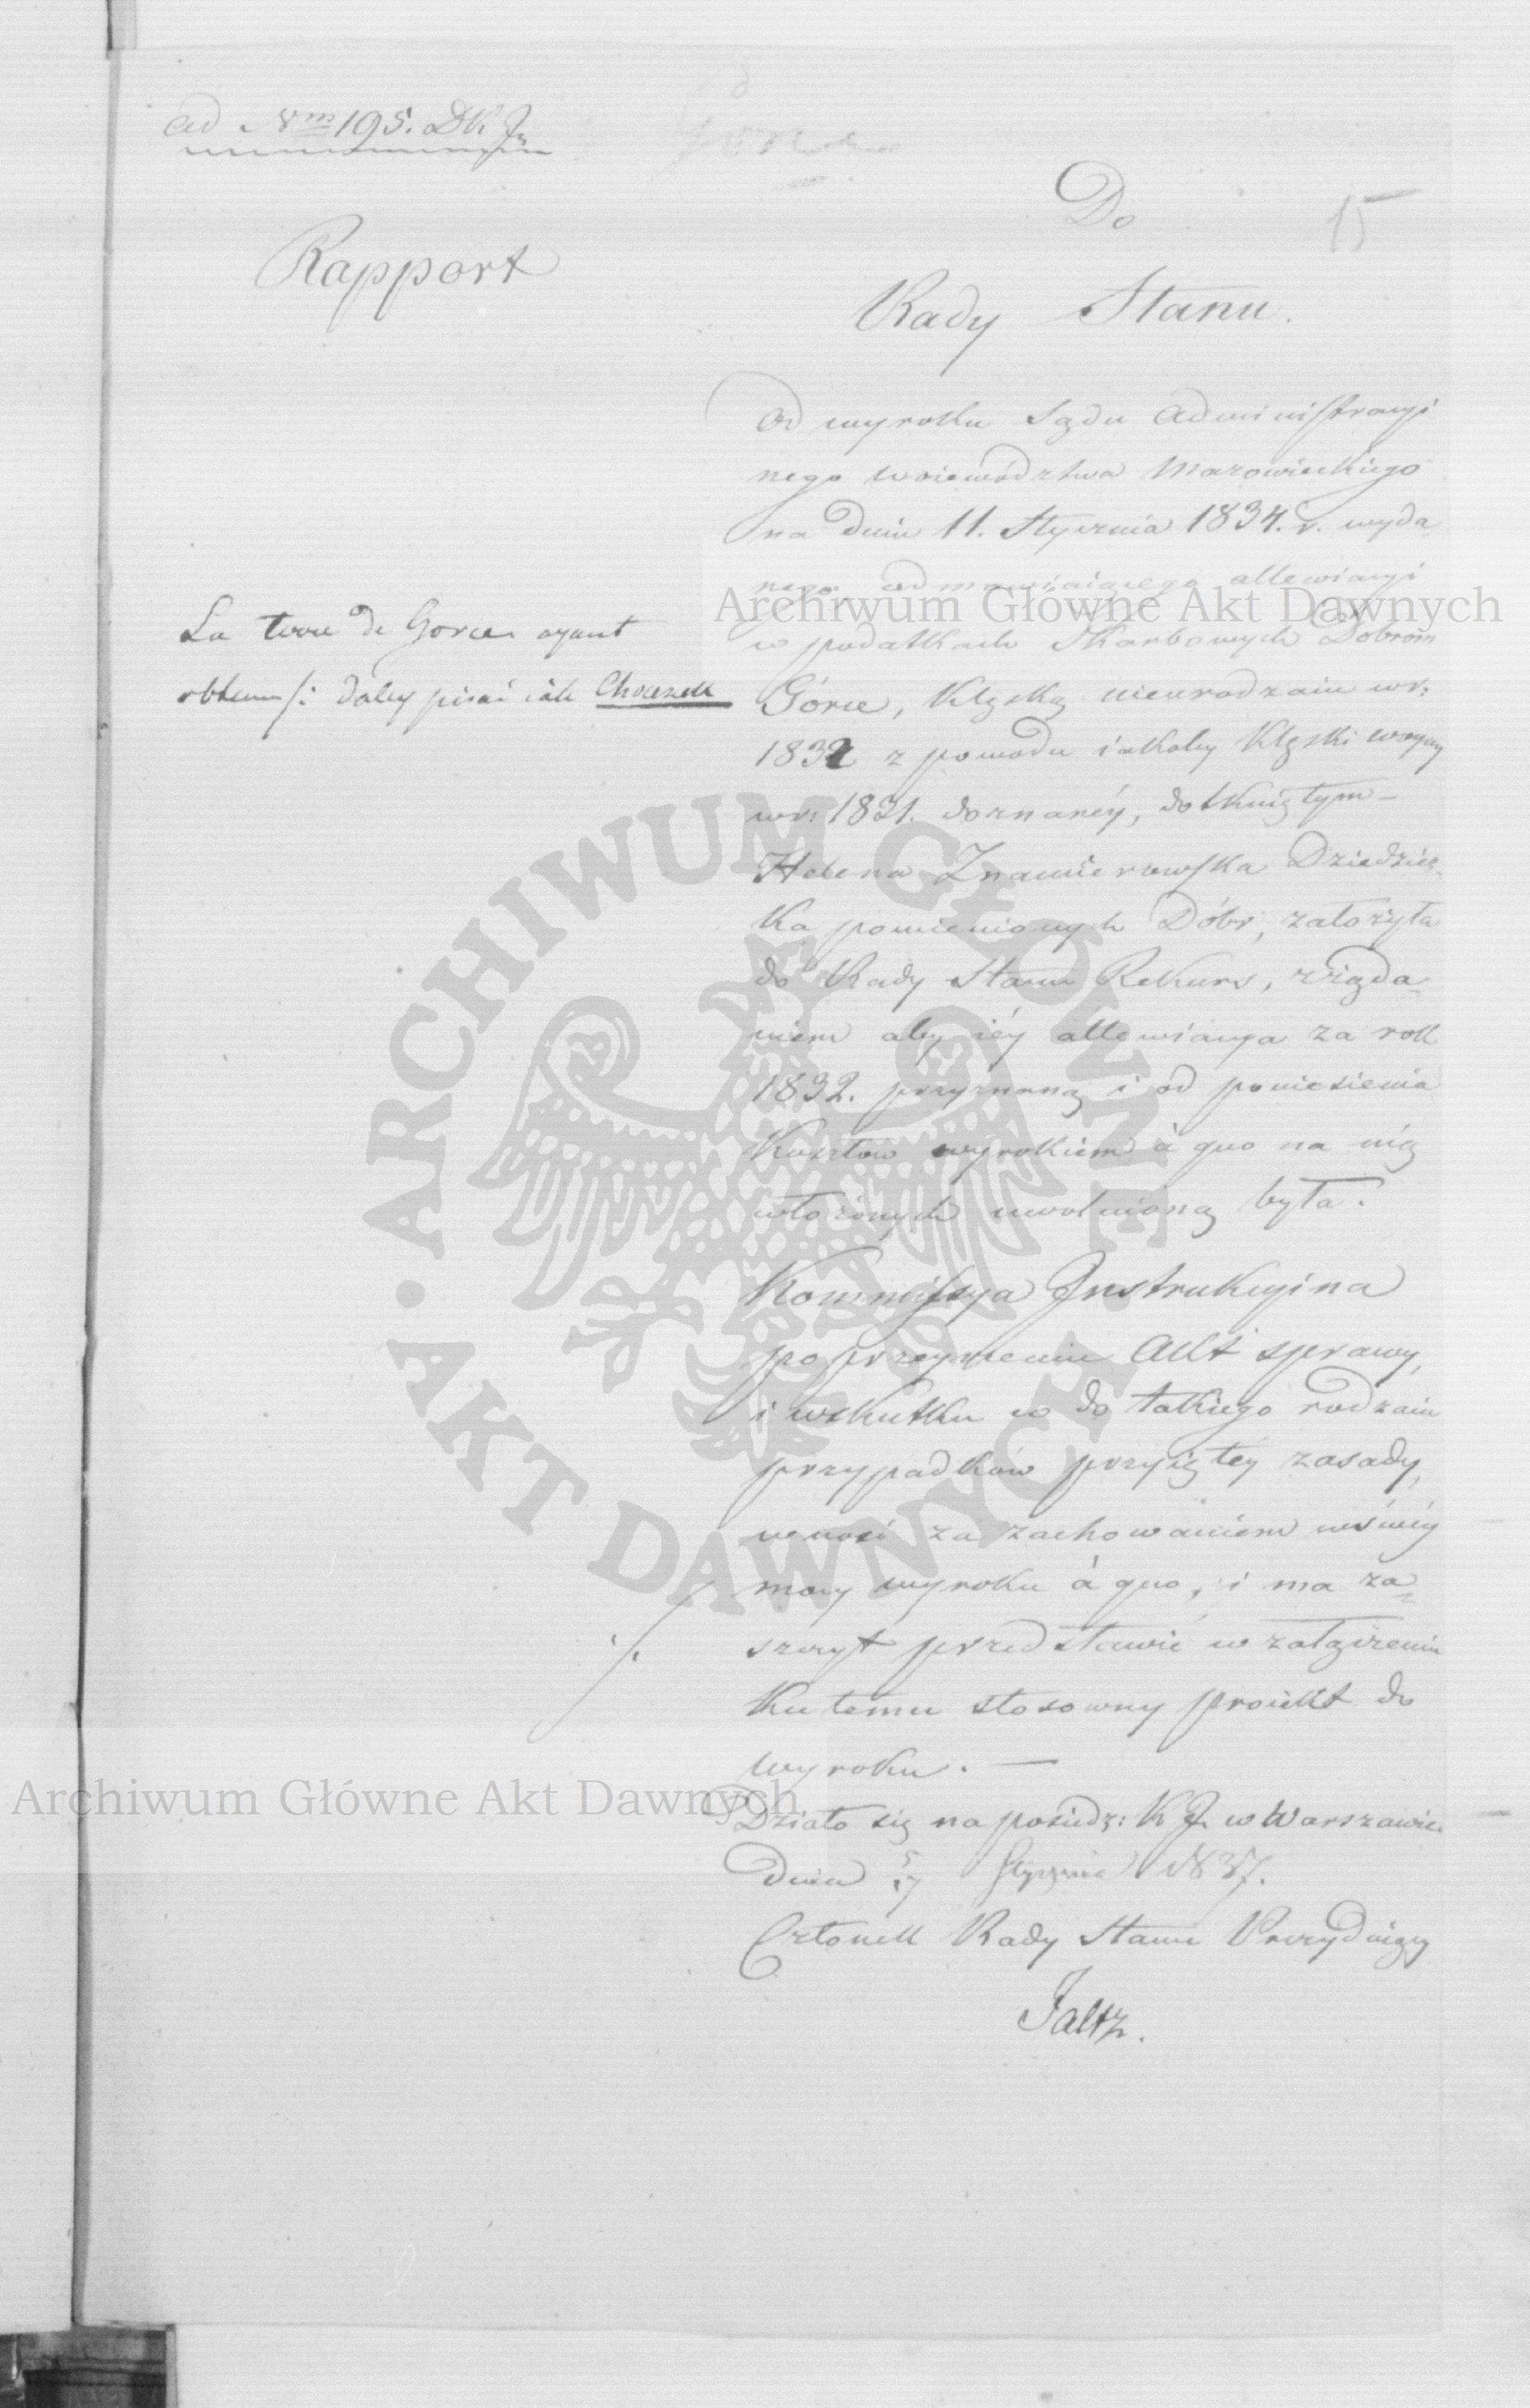 ad Nrm 195. Dk. J.
Górce
Do
15
Rapport
Rady Stanu.
Od wyroku Sądu Administracyi
nego Woiewództwa Mazowieckiego
na dniu 11. Stycznia 1834. r. wyda
nego, odmawiaiącego allewiacyi
w podatkach Skarbowych Dobrom
Górce, Klęską nieurodzaiu w r:
1832 z powodu iakoby Klęski woyny
w r: 1831. doznanéy, dotkniętym –
Helena Znamierowska Dziedzicz„
ka pomienionych Dóbr, założyła
do Rady Stanu Rekurs, z żąda„
niem aby iéy allewiacya za rok
1832. przyznaną i od poniesienia
Kosztów wyrokiem à quo na nią
włożonych uwolnioną była.
La terre de Gorce ayant
obtenu /: daléy pisać iak Choczek
Kommissya Instrukcyina
po przeyrzeniu Akt sprawy,
i w skutku co do takiego rodzaiu
przypadków przyiętéy zasady,
wnosi za zachowaniem w swéy
mocy wyroku à quo, i ma za„
szczyt przedstawić w załączeniu
ku temu stosowny proiekt do
wyroku. —
Działo się na posiedz: K. J. w Warszawie
dnia 5/17 Stycznia 1837.
Członek Rady Stanu Prezyduiący
Faltz.
Archiwum Główne Akt Dawnych
Archiwum Główne Akt Dawnych
ARCHIWUM GŁÓWNE · AKT DAWNYCH ·